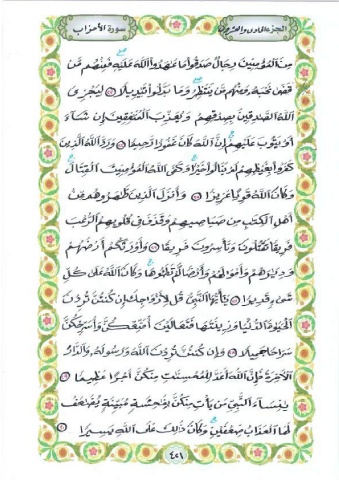 الجزء الحادى والعشرون
سورة الأحزاب
مِّنَ ٱلْمُؤْمِنِينَ رِجَالٌ صَدَقُوا۟ مَا عَـٰهَدُوا۟ ٱللَّهَ عَلَيْهِ فَمِنْهُم مَّن
قَضَىٰ نَحْبَهُۥ وَمِنْهُم مَّن يَنتَظِرُ وَمَا بَدَّلُوا۟ تَبْدِيلًا ۝٢٣ لِّيَجْزِىَ
ٱللَّهُ ٱلصَّـٰدِقِينَ بِصِدْقِهِمْ وَيُعَذِّبَ ٱلْمُنَـٰفِقِينَ إِن شَآءَ
أَوْ يَتُوبَ عَلَيْهِمْ إِنَّ ٱللَّهَ كَانَ غَفُورًا رَّحِيمًا ۝٢٤ وَرَدَّ ٱللَّهُ ٱلَّذِينَ
كَفَرُوا۟ بِغَيْظِهِمْ لَمْ يَنَالُوا۟ خَيْرًا وَكَفَى ٱللَّهُ ٱلْمُؤْمِنِينَ ٱلْقِتَالَ
وَكَانَ ٱللَّهُ قَوِيًّا عَزِيزًا ۝٢٥ وَأَنزَلَ ٱلَّذِينَ ظَـٰهَرُوهُم مِّنْ
أَهْلِ ٱلْكِتَـٰبِ مِن صَيَاصِيهِمْ وَقَذَفَ فِى قُلُوبِهِمُ ٱلرُّعْبَ
فَرِيقًا تَقْتُلُونَ وَتَأْسِرُونَ فَرِيقًا ۝٢٦ وَأَوْرَثَكُمْ أَرْضَهُمْ
وَدِيَـٰرَهُمْ وَأَمْوَٰلَهُمْ وَأَرْضًا لَّمْ تَطَـُٔوهَا وَكَانَ ٱللَّهُ عَلَىٰ كُلِّ
شَىْءٍ قَدِيرًا ۝٢٧ يَـٰٓأَيُّهَا ٱلنَّبِىُّ قُل لِّأَزْوَٰجِكَ إِن كُنتُنَّ تُرِدْنَ
ٱلْحَيَوٰةَ ٱلدُّنْيَا وَزِينَتَهَا فَتَعَالَيْنَ أُمَتِّعْكُنَّ وَأُسَرِّحْكُنَّ
سَرَاحًا جَمِيلًا ۝٢٨ وَإِن كُنتُنَّ تُرِدْنَ ٱللَّهَ وَرَسُولَهُۥ وَٱلدَّارَ
ٱلْـَٔاخِرَةَ فَإِنَّ ٱللَّهَ أَعَدَّ لِلْمُحْسِنَـٰتِ مِنكُنَّ أَجْرًا عَظِيمًا ۝٢٩
يَـٰنِسَآءَ ٱلنَّبِىِّ مَن يَأْتِ مِنكُنَّ بِفَـٰحِشَةٍ مُّبَيِّنَةٍ يُضَـٰعَفْ
لَهَا ٱلْعَذَابُ ضِعْفَيْنِ وَكَانَ ذَٰلِكَ عَلَى ٱللَّهِ يَسِيرًا ۝٣٠
٤٢١